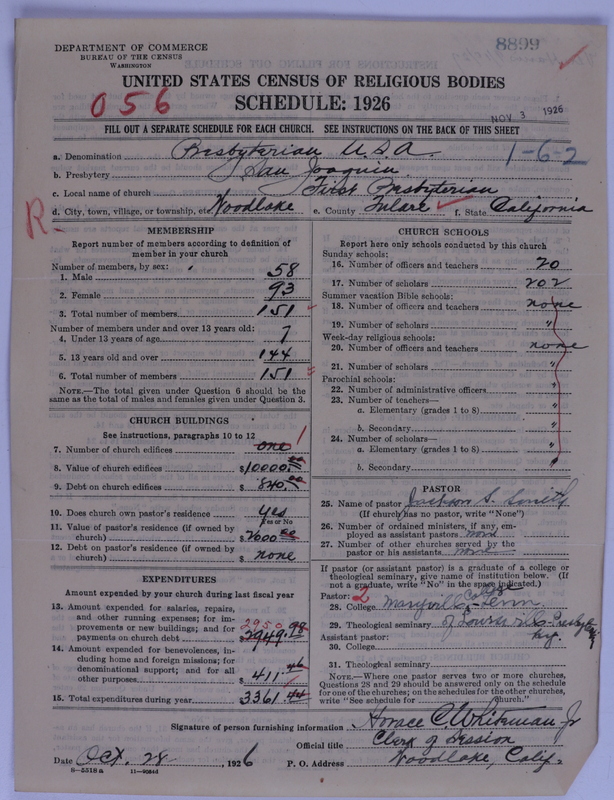 8899
DEPARTMENT OF COMMERCE
BUREAU OF THE CENSUS
WASHINGTON
UNITED STATES CENSUS OF RELIGIOUS BODIES
056
SCHEDULE: 1926
NOV 3 1926
FILL OUT A SEPARATE SCHEDULE FOR EACH CHURCH. SEE INSTRUCTIONS ON THE BACK OF THIS SHEET
a. Denomination Presbyterian U.S.A. 1-6-2
b. Presbytery San Joaquin
c. Local name of church First Presbyterian
R- d. City, town, village, or township, etc. Woodlake e. County Tulare f. State California
MEMBERSHIP
Report number of members according to definition of
member in your church
Number of members, by sex:
1. Male 58
2. Female 93
3. Total number of members 151
Number of members under and over 13 years old:
4. Under 13 years of age 7
5. 13 years old and over 144
6. Total number of members 151
NOTE.—The total given under Question 6 should be the
same as the total of males and females given under Question 3.
CHURCH BUILDINGS
See instructions, paragraphs 10 to 12
7. Number of church edifices one 1
8. Value of church edifices $10000.00
9. Debt on church edifices $840.00
10. Does church own pastor's residence yes
Yes or No
11. Value of pastor's residence (if owned by
church) $2000.00
12. Debt on pastor's residence (if owned by
church) $none
EXPENDITURES
Amount expended by your church during last fiscal year
13. Amount expended for salaries, repairs,
and other running expenses; for im-
provements or new buildings; and for 2950
payments on church debt $2949.98
14. Amount expended for benevolences, in-
cluding home and foreign missions; for
denominational support; and for all
other purposes $411.46
15. Total expenditures during year $3361.44
CHURCH SCHOOLS
Report here only schools conducted by this church
Sunday schools:
16. Number of officers and teachers 20
17. Number of scholars 202
Summer vacation Bible schools:
18. Number of officers and teachers none
19. Number of scholars "
Week-day religious schools:
20. Number of officers and teachers none
21. Number of scholars "
Parochial schools:
22. Number of administrative officers "
23. Number of teachers—
a. Elementary (grades 1 to 8) "
b. Secondary "
24. Number of scholars—
a. Elementary (grades 1 to 8) "
b. Secondary "
PASTOR
25. Name of pastor Jackson S. Smith
(If church has no pastor, write "None")
26. Number of ordained ministers, if any, em-
ployed as assistant pastors none
27. Number of other churches served by the
pastor or his assistants none
If pastor (or assistant pastor) is a graduate of a college or
theological seminary, give name of institution below. (If
not a graduate, write "No" in the space indicated.)
Pastor: 2
28. College Maryville College Tenn.
29. Theological seminary of Louisville Presby
Ky.
Assistant pastor:
30. College
31. Theological seminary
NOTE.—Where one pastor serves two or more churches,
Questions 28 and 29 should be answered only on the schedule
for one of the churches; on the schedules for the other churches,
write "See schedule for church."
Signature of person furnishing information Horace C. Whitman Jr
Official title Clerk of Session
Date Oct. 28, 1926 P. O. Address Woodlake, Calif.
8-5318a 11-9054d